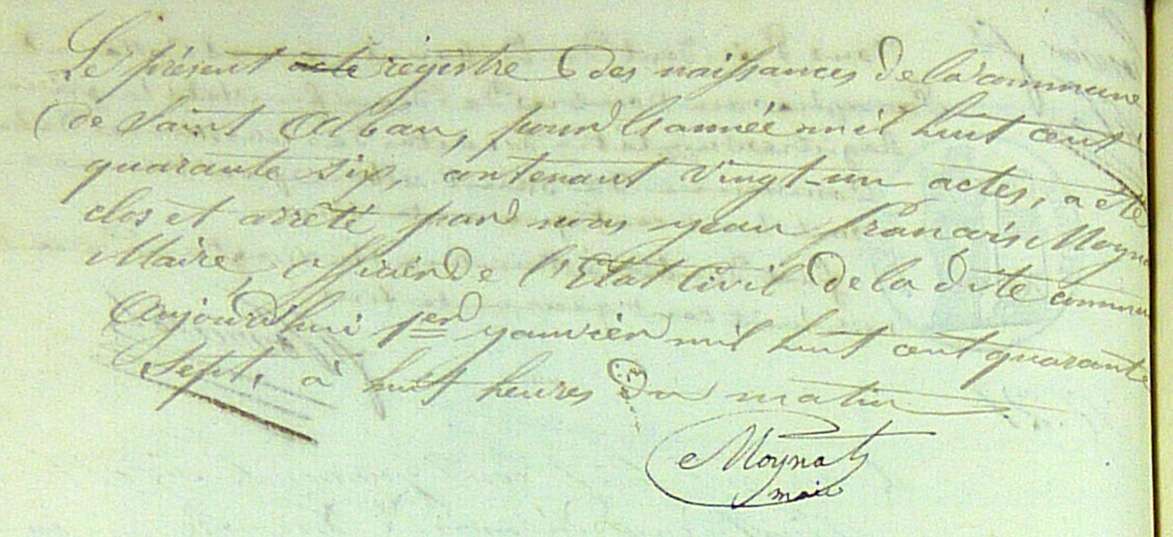 Le présent acte registre des naissances de la commune
de Saint Alban, pour l'année mil huit cent
quarante six, contenant vingt-un actes, a été
clos et arrêté par nous jean françois Moyna
Maire, officier de l'Etat Civil de la dite commune
Aujourd'hui 1er janvier mil huit cent quarante
Sept, à huit heures du matin
Moynat
maire